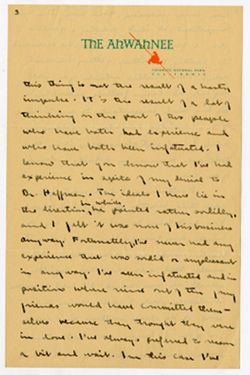 3
THE AHWAHNEE
YOSEMITE NATIONAL PARK
CALIFORNIA
this thing is not the result of a hasty
impulse. It is the result of a lot of
thinking on the part of two people
who have both had experience and
who have both been infatuated. I
know that you know that I've had
experience in spite of my denial to
Dr. Hoffman. The ideals I have lie in
the direction, in which, he pointed rather solidly,
and I felt it was none of his business
anyway. Fortunately, I've never had any
experience that was sordid or unpleasant
in any way. I've been infatuated and in
position where nine out of ten of my
friends would have committed them-
selves because they thought they were
in love. I've always preferred to reason
a bit and wait. In this case I've